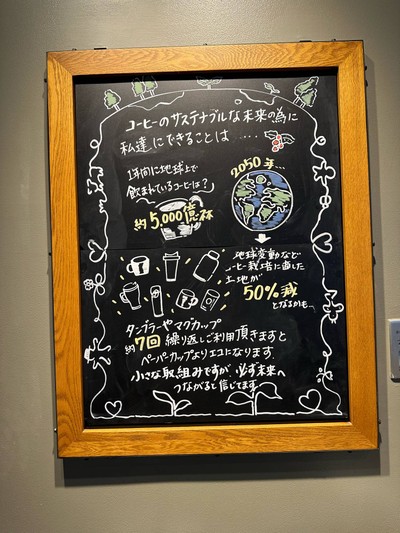 コーヒーのサステナブルな未来の為に
私達にできることは‥‥
1年間に地球上で
飲まれているコーヒーは?
約5,000億杯
2050年...
地球変動など
コーヒー栽培に適した
土地が
50%減
となるかも...
タンブラーやマグカップ
約7回繰り返しご利用頂きますと
ペーパーカップよりエコになります
小さな取組みですが、必ず未来へ
つながると信じてます